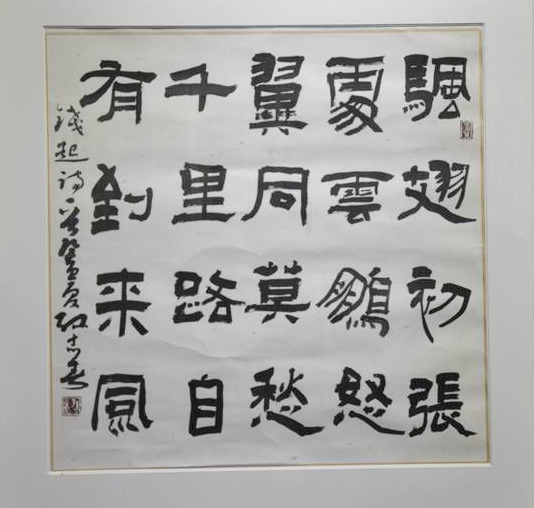 颿翅初張
處雲鵬怒
翼同莫愁
千里路自
有到来風
錢起詩一首